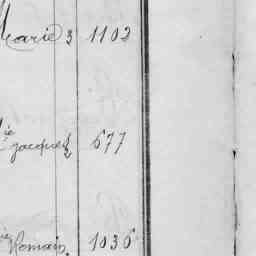 Marie 3 1102
ie
Jacques 2 677
ie
Romain 1036